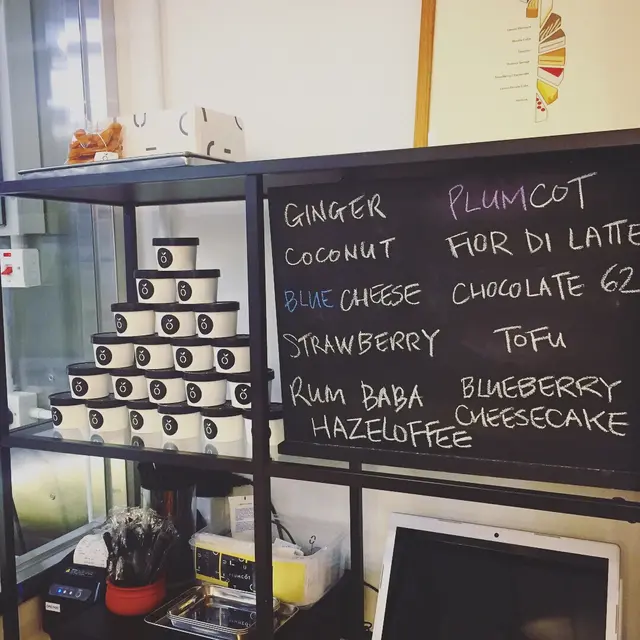 GINGER
COCONUT
BLUE CHEESE
STRAWBERRY
RUM BABA
HAZELOFFEE
PLUMCOT
FIOR DI LATTE
CHOCOLATE 62
TOFU
BLUEBERRY
CHEESECAKE